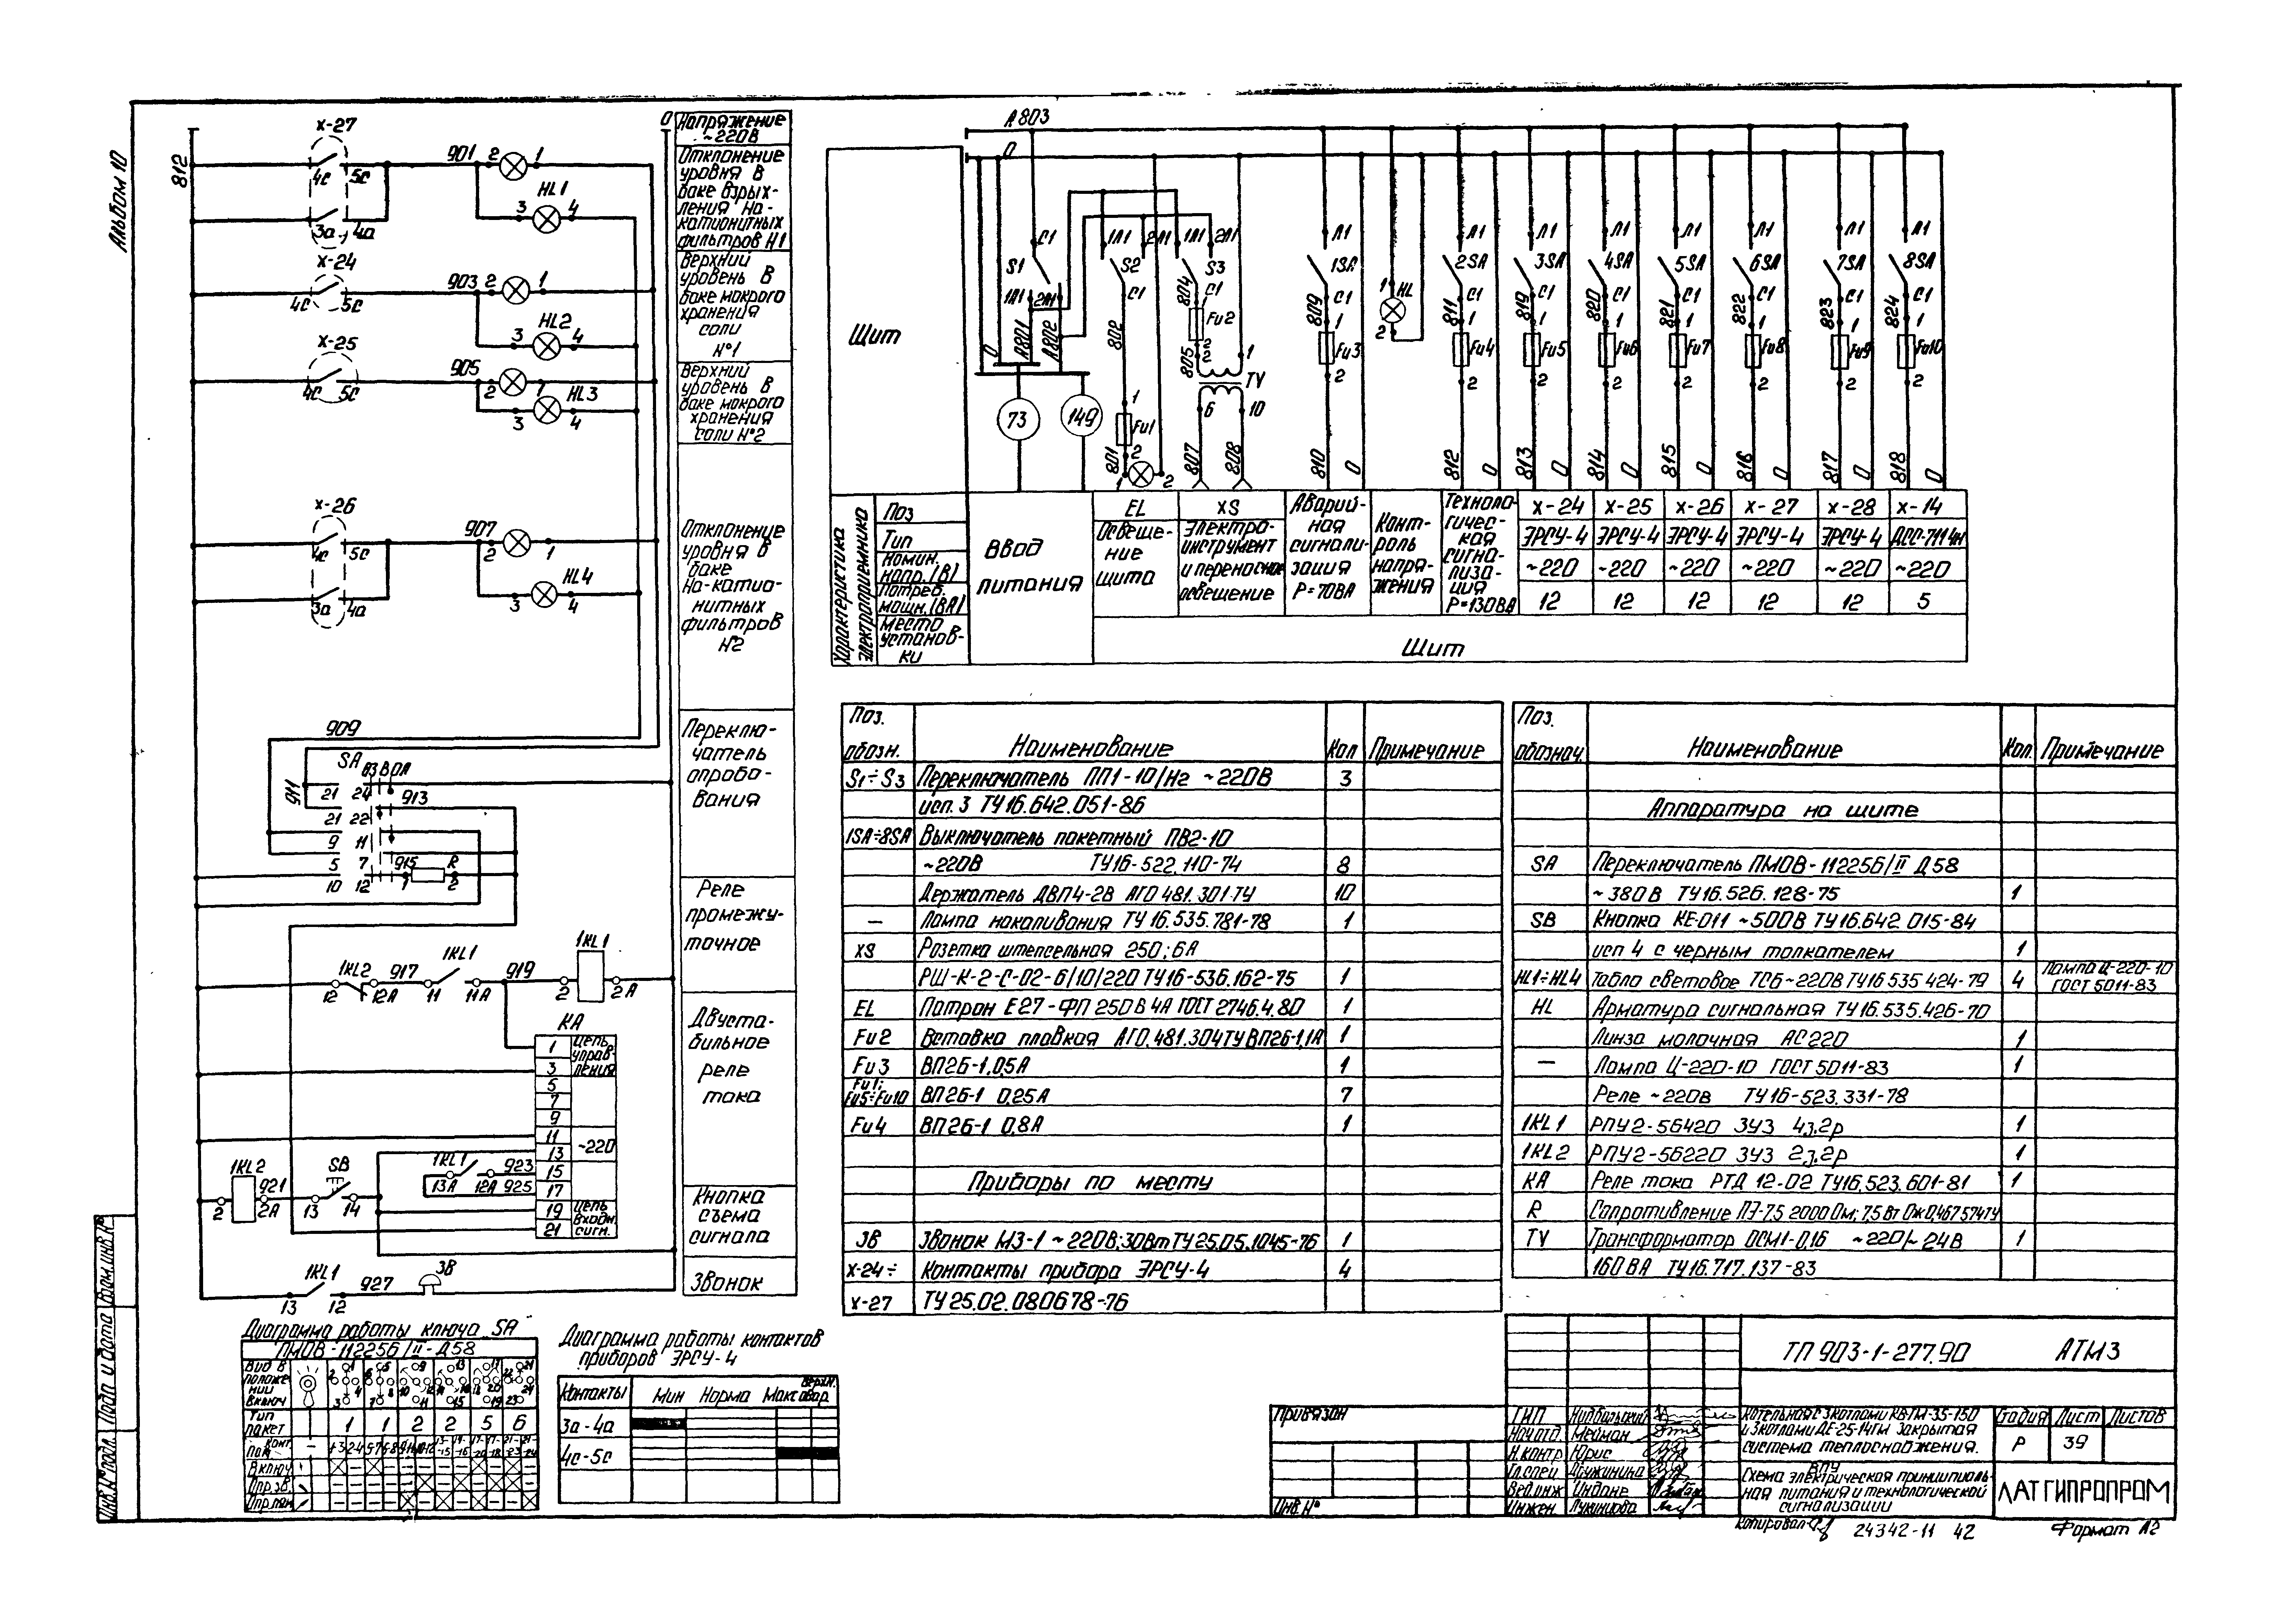 Альбом 10
812
0
Напряжение
~220В
х-27
4с 5с
3а 4а
901 2 1
HL1
3 4
Отклонение
уровня в
баке взрых-
ления На-
катионитных
фильтров №1
х-24
4с 5с
903 2 1
HL2
3 4
Верхний
уровень в
баке мокрого
хранения
соли
№1
х-25
4с 5с
905
2 1
HL3
3 4
Верхний
уровень в
баке мокрого
хранения
соли №2
х-26
4с 5с
3а 4а
907
2 1
HL4
3 4
Отклонение
уровня в
баке
На-катио-
нитных
фильтров
№2
909
911
SA
21 24
913
21 22
9 11
5 7
915
R
10 12
1 2
Переклю-
чатель
опробо-
вания
Реле
промежу-
точное
1KL2 917 1KL1 919 1KL1
12 12А 11 11А 2 2А
KA
1 Цепь
управ-
3 ления
5
7
9
11
~220
13
15
17
19 Цепь
входн.
21 сигн.
Двуста-
бильное
реле
тока
1KL2
921
2 2А
SB
13 14
1KL1
13А 12А
923
925
Кнопка
съема
сигнала
1KL1 927 ЗВ
13 12
Звонок
Диаграмма работы ключа SA
ПМОВ-112256/II-Д58
Вид в
положе
нии
включ
Тип
пакет 1 1 2 2 5 6
Диаграмма работы контактов
приборов ЭРСУ-4
Контакты Мин Норма Макс
3а-4а
4с-5с
А803
0
Щит
S1 С1
1Л1 2Л1
0 А801 А802
73
149
1Л1 2Л1
S2
С1
802
1
Fu1
2
801
1 2
1Л1 2Л1
S3
804 С1
1
Fu2
2
805 2 1
TV
6 10
807 808
Л1
1SA
809 С1
1
Fu3
2
810 0
1
HL
2
Л1 Л1 Л1 Л1 Л1 Л1 Л1
2SA 3SA 4SA 5SA 6SA 7SA 8SA
811 С1 819 С1 820 С1 821 С1 822 С1 823 С1 824 С1
1 1 1 1 1 1 1
Fu4 Fu5 Fu6 Fu7 Fu8 Fu9 Fu10
2 2 2 2 2 2 2
812 0 813 0 814 0 815 0 816 0 817 0 818 0
Характеристика
электроприемника
Поз
Тип
Номин.
напр.(В)
Потреб.
мощн.(ВА)
Место
установ-
ки
Ввод
питания
EL
Освеще-
ние
щита
XS
Электро-
инструмент
и переносное
освещение
Аварий-
ная
сигнали-
зация
Р=70ВА
Конт-
роль
напря-
жения
Техноло-
гичес-
кая
сигна-
лиза-
ция
Р=130ВА
х-24 х-25 х-26 х-27 х-28 х-14
ЭРСУ-4 ЭРСУ-4 ЭРСУ-4 ЭРСУ-4 ЭРСУ-4 ДСС-711 4н
~220 ~220 ~220 ~220 ~220 ~220
12 12 12 12 12 5
Щит
Поз.
обозн. Наименование Кол Примечание
S1÷S3 Переключатель ПП1-10/Н2 ~220В 3
исп. 3 ТУ16.642.051-86
1SA÷8SA Выключатель пакетный ПВ2-10
~220В ТУ16-522.110-74 8
Держатель ДВП4-2В АГО.481.301.ТУ 10
— Лампа накаливания ТУ16.535.781-78 1
XS Розетка штепсельная 250; 6А
РШ-К-2-С-02-6/10/220 ТУ16-536.162-75 1
EL Патрон Е27-ФП 250В 4А ГОСТ 2746.4.80 1
Fu2 Вставка плавкая АГО.481.304ТУ ВП2б-1,1А 1
Fu3 ВП2б-1,0,5А 1
Fu1;
Fu5÷Fu10 ВП2б-1 0,25А 7
Fu4 ВП2б-1 0,8А 1
Приборы по месту
ЗВ Звонок МЗ-1 ~220В; 30Вт ТУ25.05.1045-76 1
х-24÷ Контакты прибора ЭРСУ-4 4
х-27 ТУ25.02.080678-76
Поз.
обознач. Наименование Кол. Примечание
Аппаратура на щите
SA Переключатель ПМОВ-112256/II Д58
~380В ТУ16.526.128-75 1
SB Кнопка КЕ-011 ~500В ТУ16.642.015-84
исп 4 с черным толкателем 1
HL1÷HL4 Табло световое ТСБ ~220В ТУ16.535.424-79 4 Лампа Ц-220-10
ГОСТ 5011-83
HL Арматура сигнальная ТУ16.535.426-70
Линза молочная АС220 1
— Лампа Ц-220-10 ГОСТ 5011-83 1
Реле ~220В ТУ16-523.331-78
1KL1 РПУ2-56420 ЗУ3 4з,2р 1
1KL2 РПУ2-56220 ЗУ3 2з,2р 1
KA Реле тока РТД 12-02 ТУ16.523.601-81 1
R Сопротивление ПЭ-7,5 2000 Ом; 7,5 Вт
TV Трансформатор ОСМ1-0,16 ~220/~24В 1
160ВА ТУ16.717.137-83
ТП 903-1-277.90 АТМ3
Привязан
Инв.№
ГИП
Нач.отд. Мейман
Н.контр Юрис
Гл.спец Дружинина
Вед.инж Индане
Инжен. Лукинцова
Котельная с 3 котлами КВ-ГМ-35-150
и 3 котлами ДЕ-25-14ГМ Закрытая
система теплоснабжения.
Стадия Лист Листов
Р 39
ВПУ
Схема электрическая принципиаль-
ная питания и технологической
сигнализации
ЛАТГИПРОПРОМ
Копировал
24342-11 42
Формат А2
Инв.№ подл. Подп. и дата Взам.инв.№